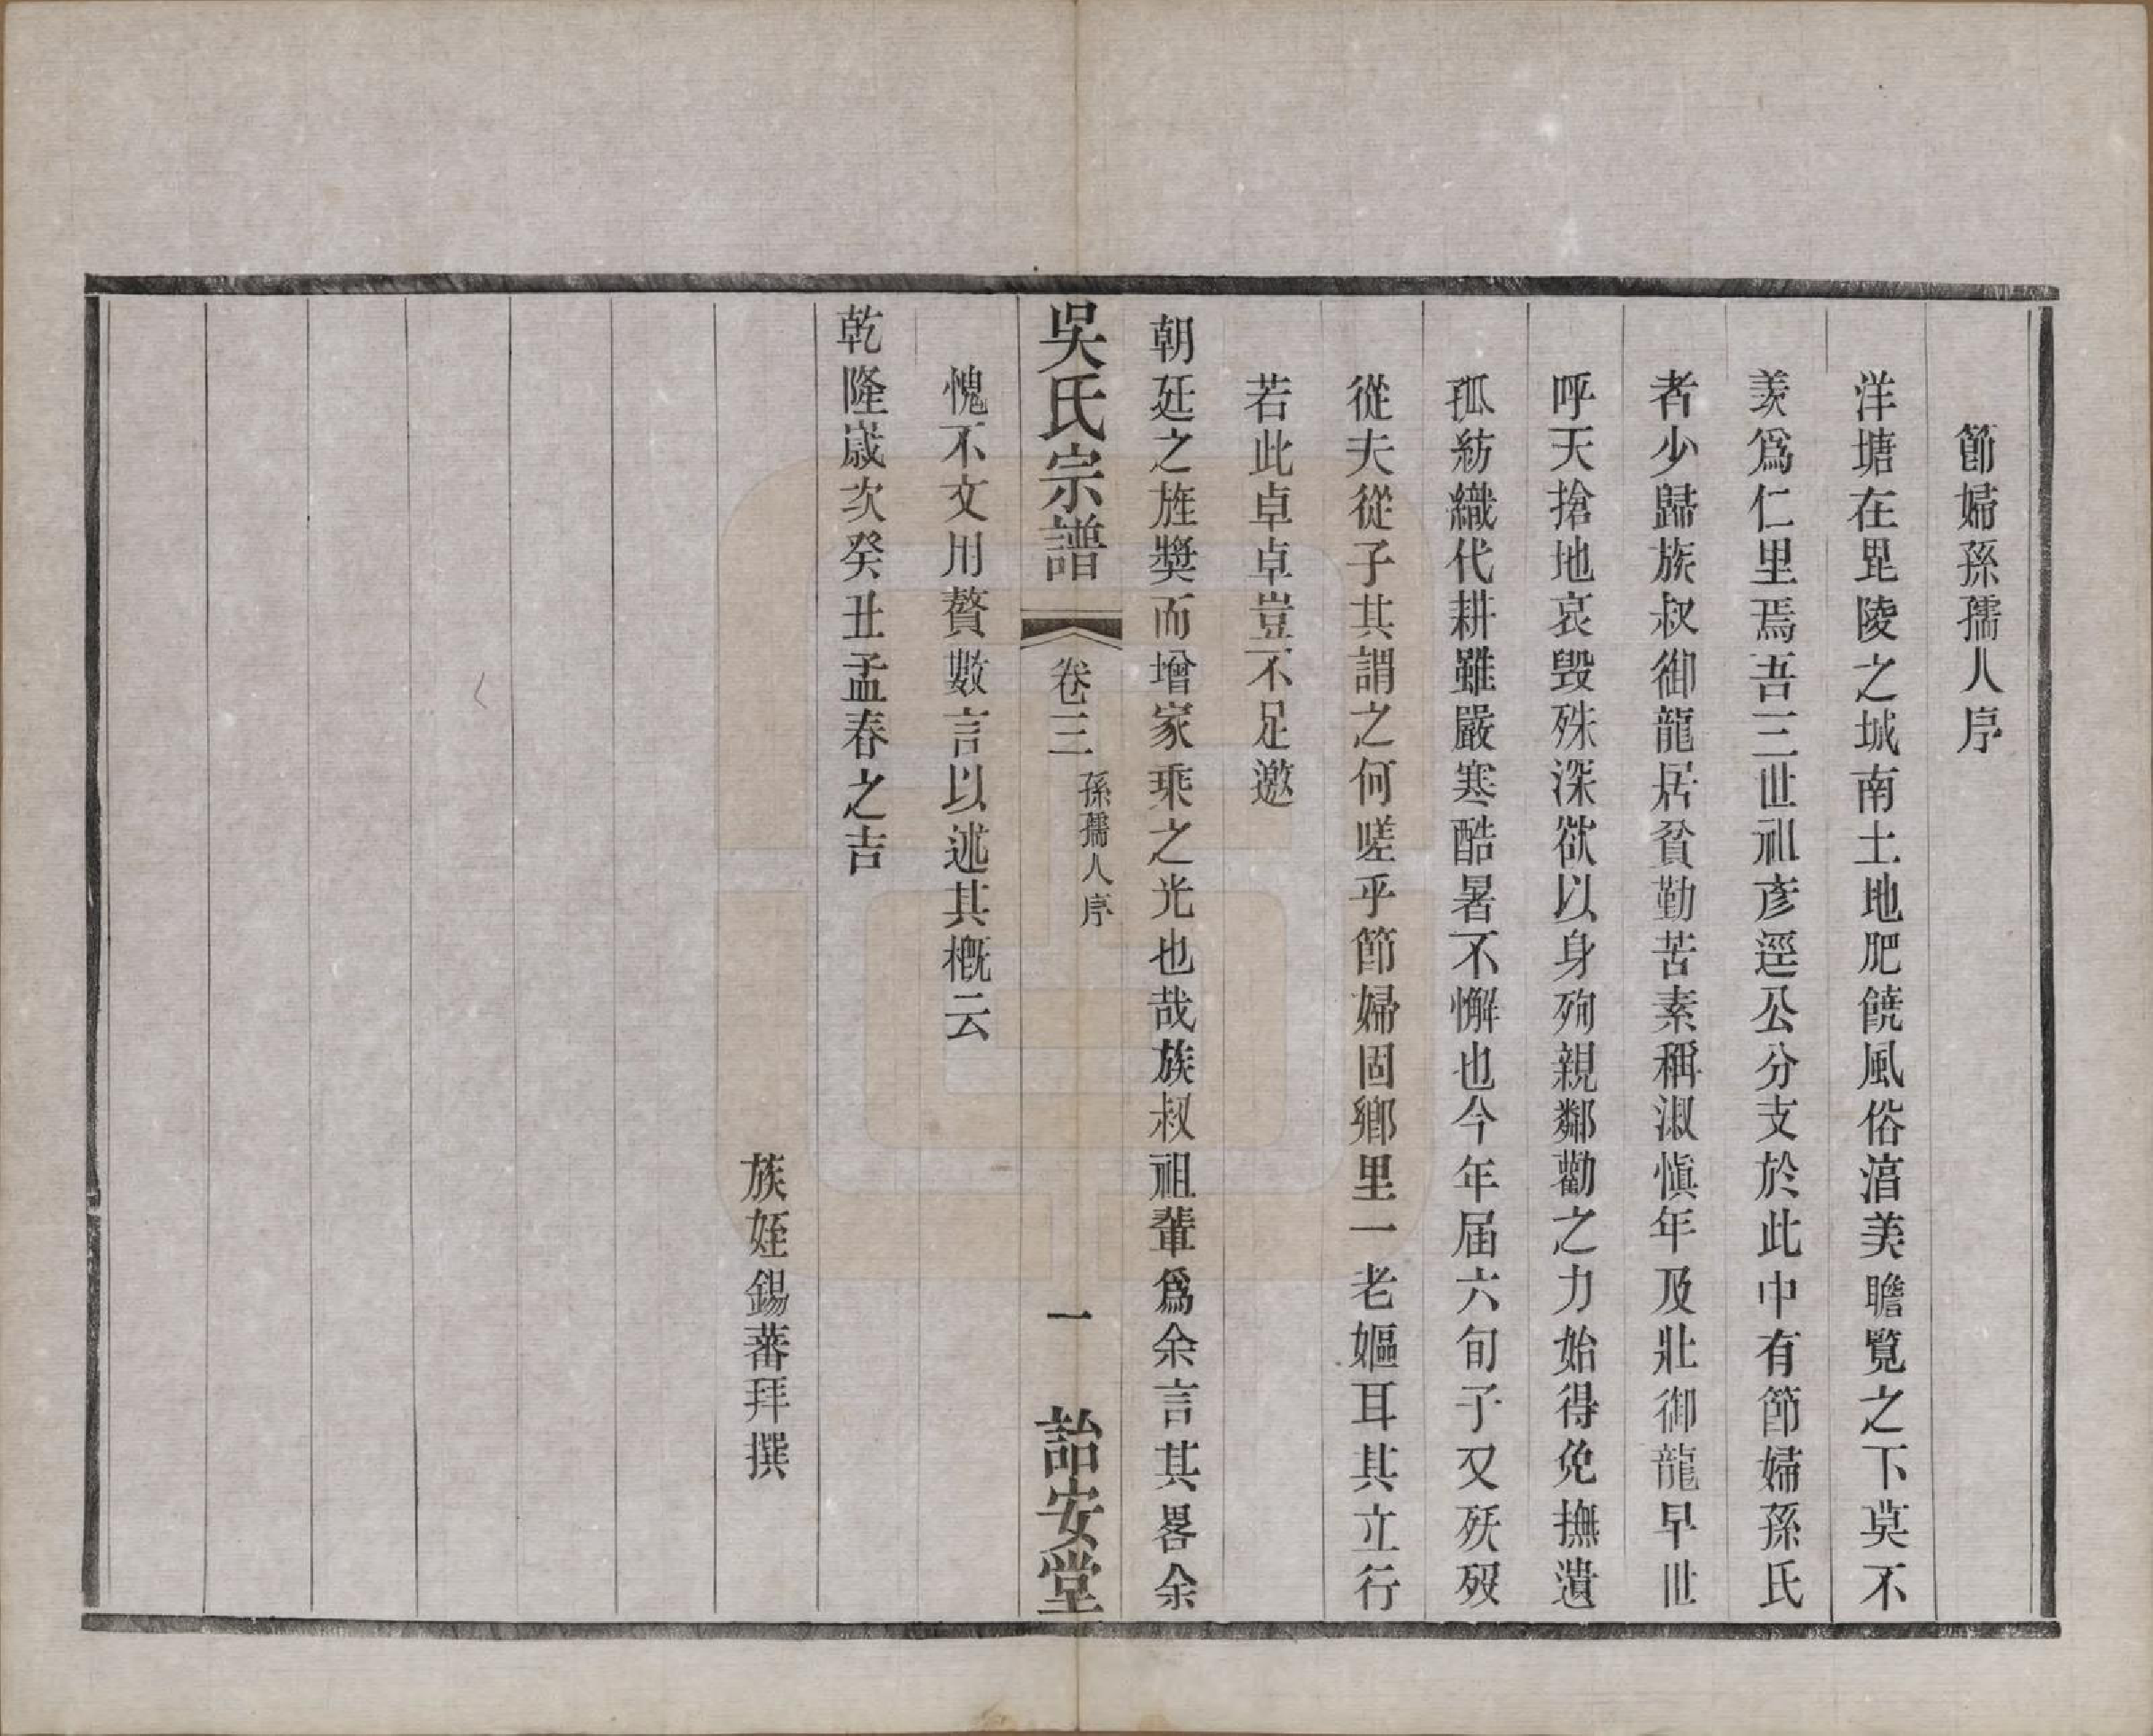 節婦孫孺人序
洋塘在毘陵之城南土地肥饒風俗湻美瞻覽之下莫不
羨爲仁里焉吾三世祖彥逕公分支於此中有節婦孫氏
者少歸族叔御龍居貧勤苦素稱淑愼年及壯御龍早世
呼天搶地哀毀殊深欲以身殉親鄰勸之力始得免撫遺
孤紡織代耕雖嚴寒酷暑不懈也今年届六旬子又殀歿
從夫從子其謂之何嗟乎節婦固鄉里一老嫗耳其立行
若此卓卓豈不足邀
朝廷之旌獎而增家乘之光也哉族叔祖輩爲余言其畧余
吳氏宗譜 卷三 孫孺人序 一 詒安堂
愧不文用贅數言以述其槪云
乾隆嵗次癸丑孟春之吉
族姪錫蕃拜撰